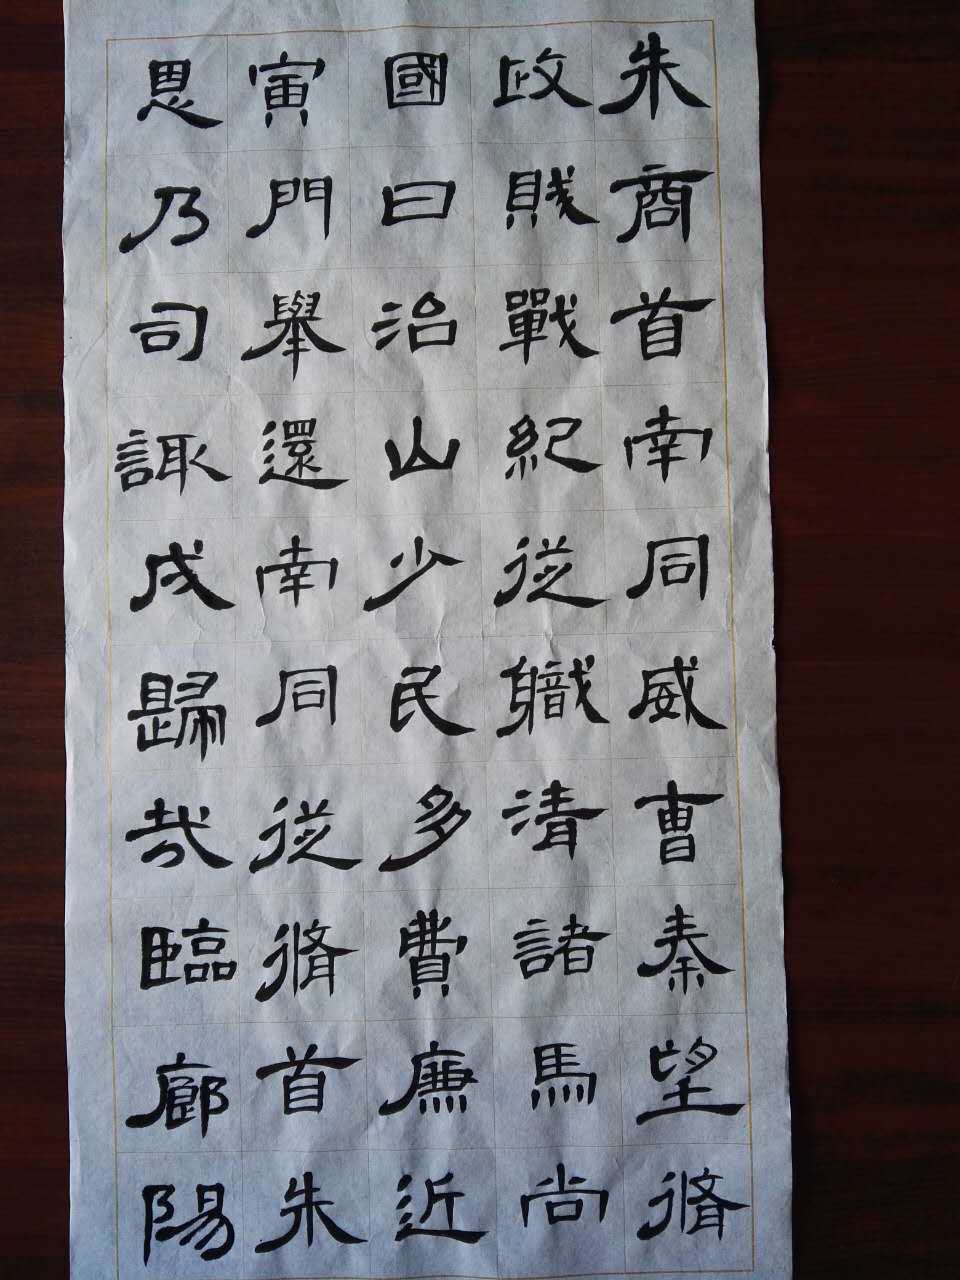 朱商首南同威曹秦望脩
政賤戰紀從職清諸馬尚
國曰治山少民多費廉近
寅門舉還南同從脩首朱
恩乃司諏成歸哉臨廊陽